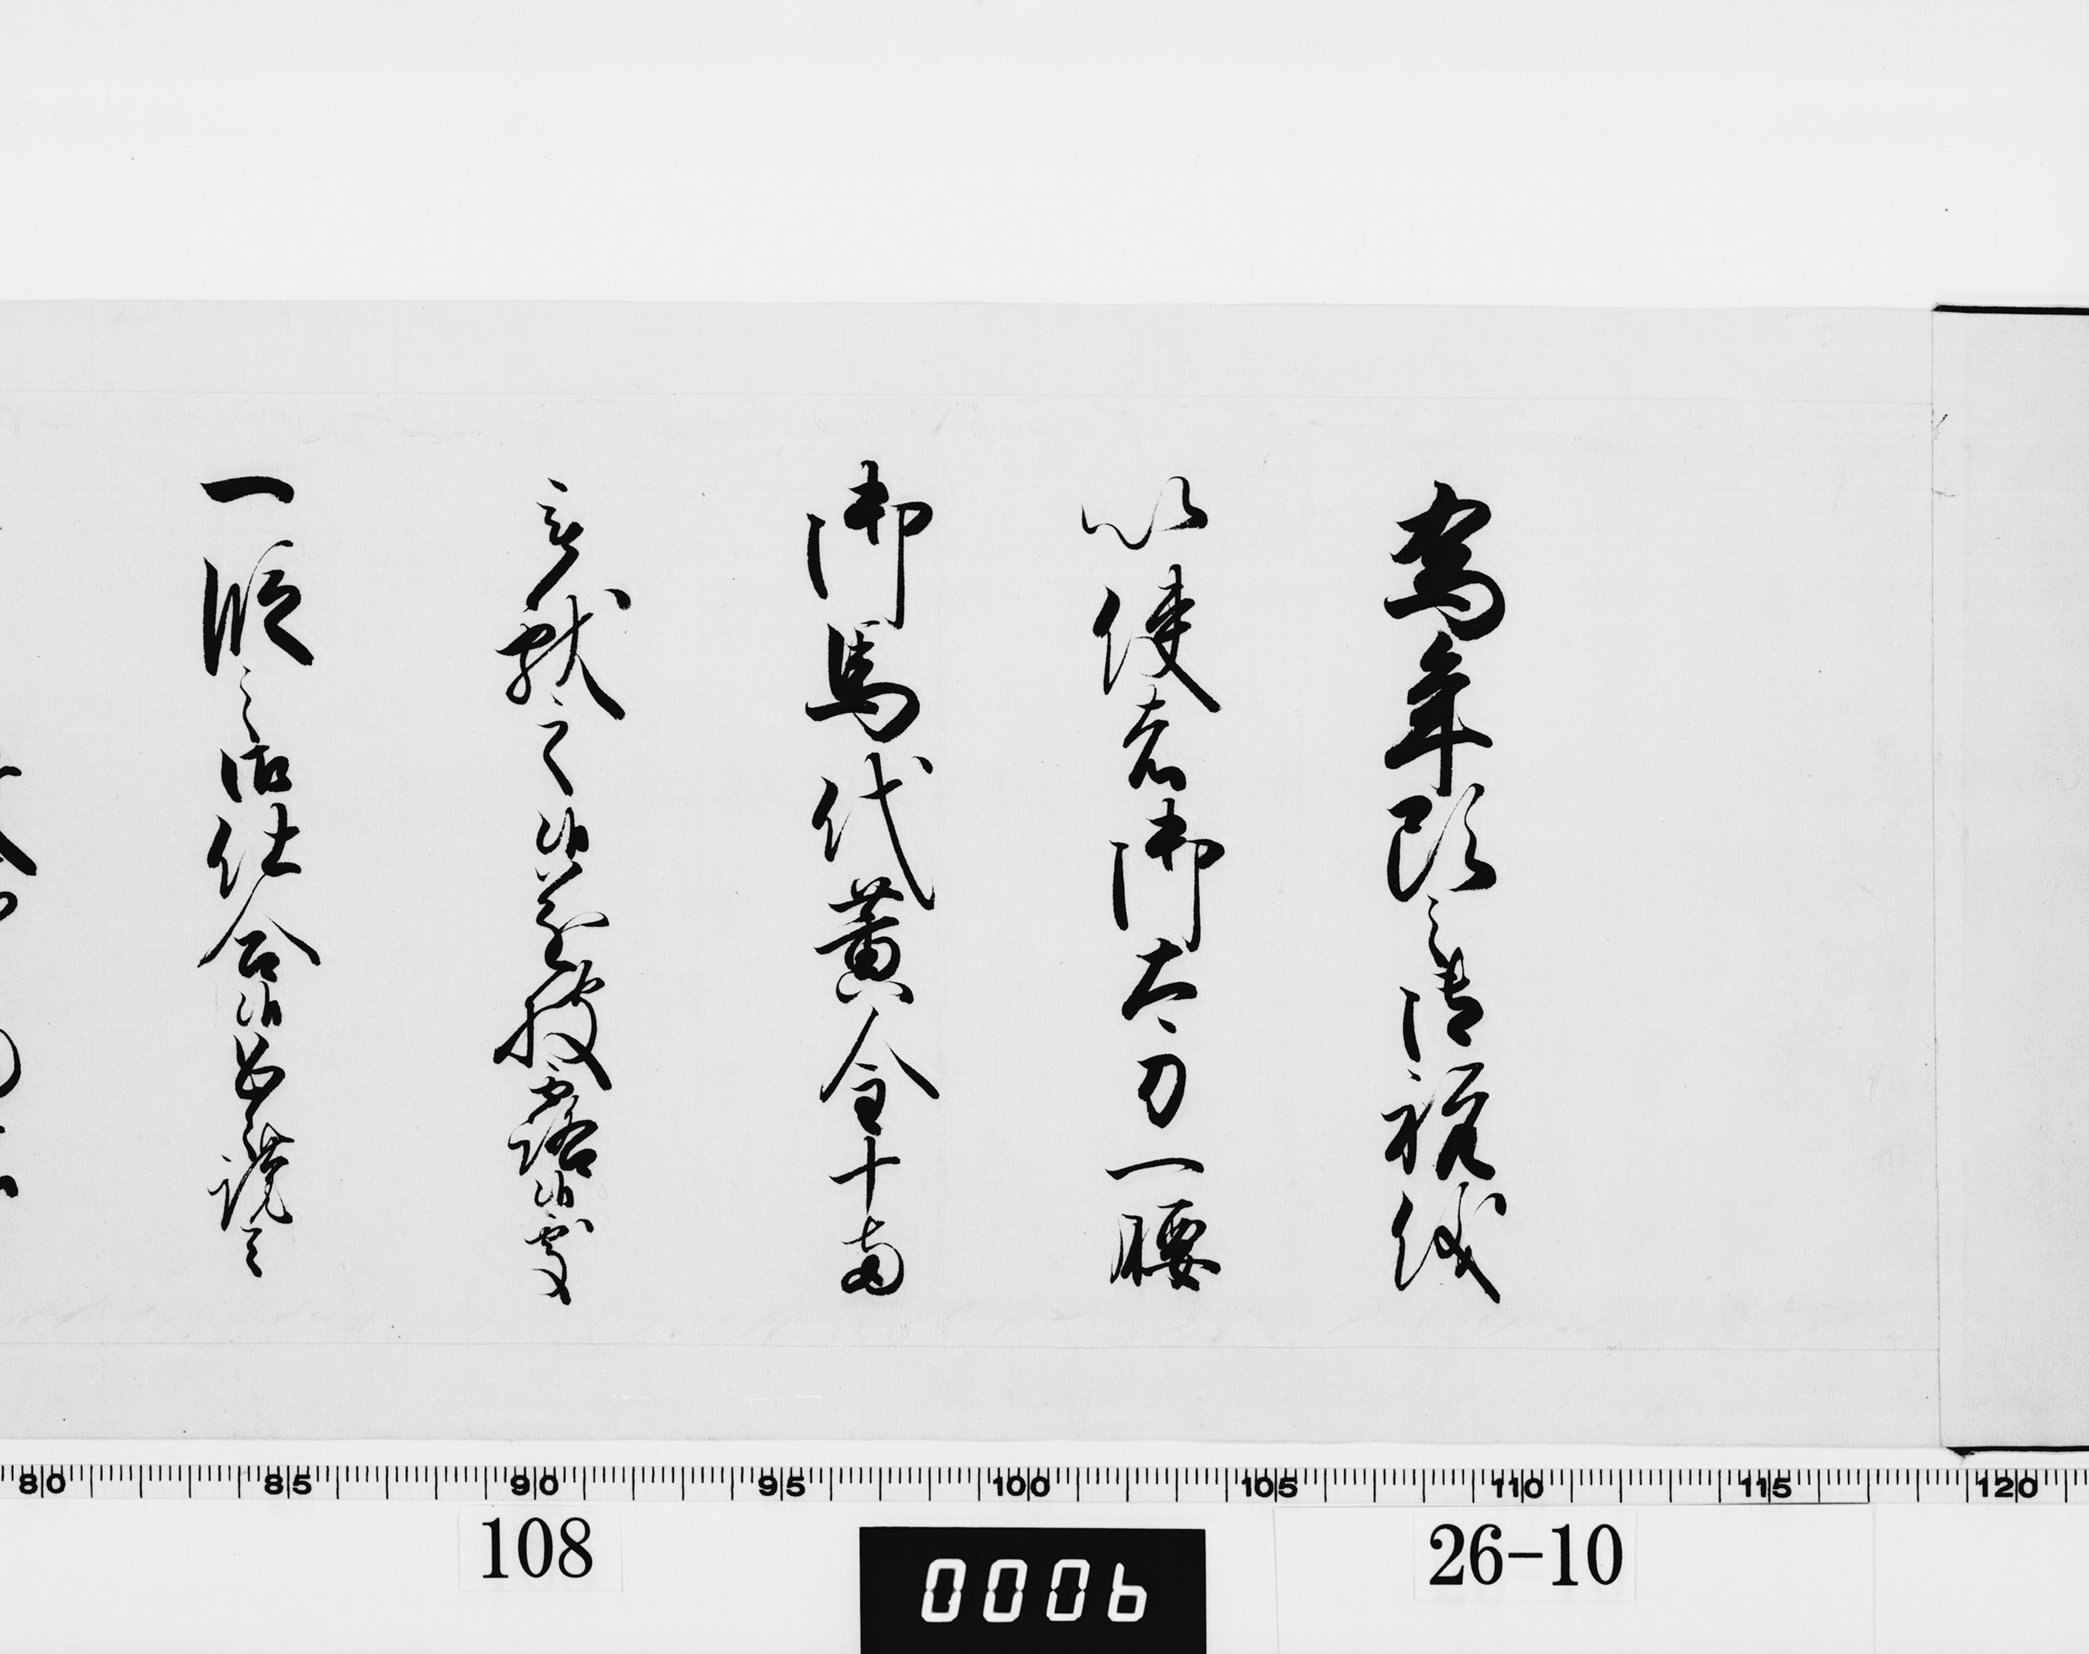 為年頭之御祝儀
以使者御太刀一腰
御馬代黄金十両
被献之候遂披露候処
一段之御仕合候
80 85 90 95 100 105 110 115 120
108
0006
26-10